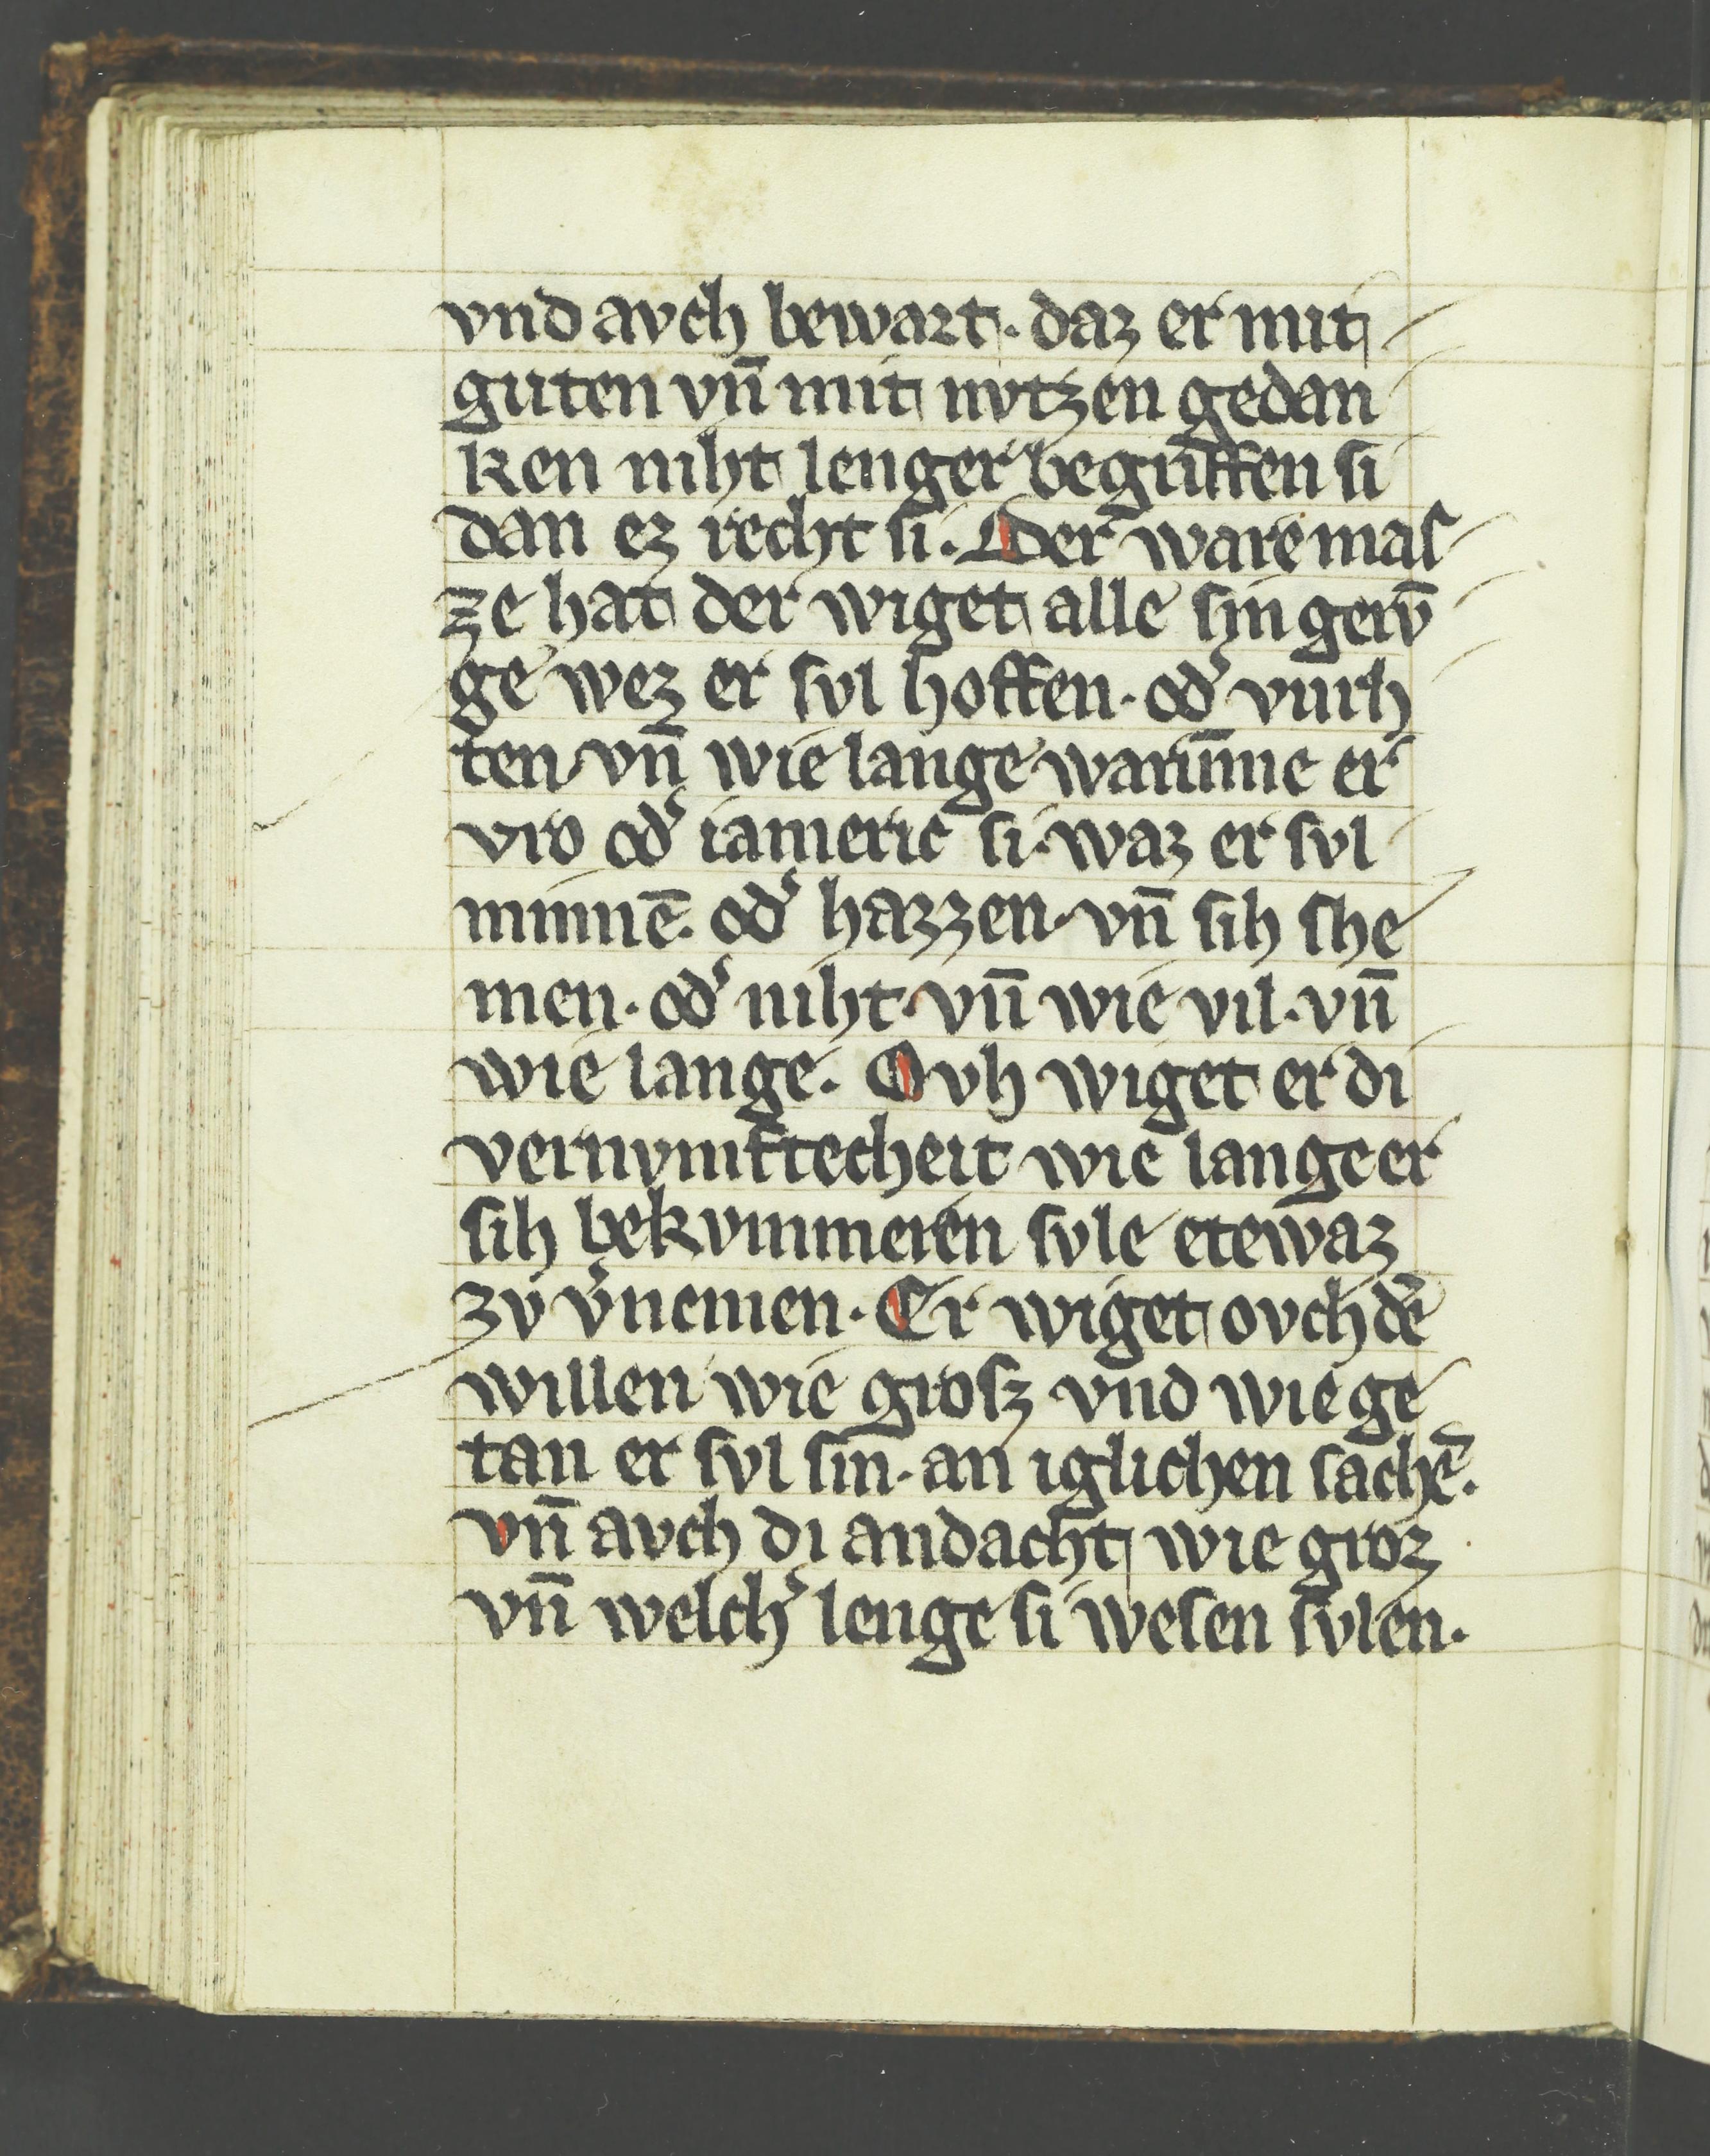 vnd avch bewart. daz er mit
guten vn̄ mit nvtzen gedan
ken niht lenger begriffen si
dan ez recht si. Der ware maſ
ze hat der wiget alle ſin gerv̄
ge wez er ſvl hoffen. od͛ vurh
ten vn̄ wie lange warūme er
vro od͛ iameric ſi. waz er ſvl
minnē. od͛ hazzen. vn̄ ſih ſhe
men. od͛ niht. vn̄ wie vil. vn̄
wie lange. Ovh wiget er di
vernvmftecheit wie lange er
ſih bekvmmeren ſvle etewaz
zv v͛nemen. Er wiget ovch dē
willen wie groſz vnd wie ge
tan er ſvl ſin. an iglichen ſachē.
vn̄ avch di andacht wie groz
vn̄ welch͛ lenge ſi weſen ſvlen.